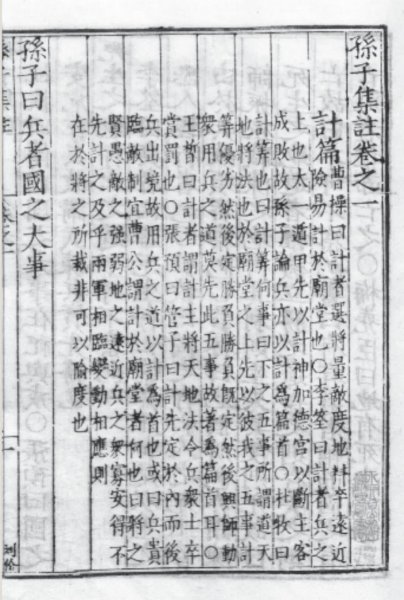 孫子集註卷之一
計篇曹操曰計者選將量敵度地料卒遠近
險易計於廟堂也○李筌曰計者兵之
上也太一遁甲先以計神加德宮以斷主客
成敗故孫子論兵亦以計爲篇首○杜牧曰
計筭也曰計筭何事曰下之五事所謂道天
地將法也於廟堂之上先以彼我之五事計
筭優劣然後定勝負勝負既定然後興師動
衆用兵之道莫先此五事故著爲篇首耳○
王晳曰計者謂計主將天地法令兵衆士卒
賞罰也○張預曰管子曰計先定於內而後
兵出境故用兵之道以計爲首也或曰兵貴
臨敵制宜曹公謂計於廟堂者何也曰將之
賢愚敵之强弱地之遠近兵之衆寡安得不
先計之及乎兩軍相臨變動相應則
在於將之所裁非可以隃度也
孫子曰兵者國之大事